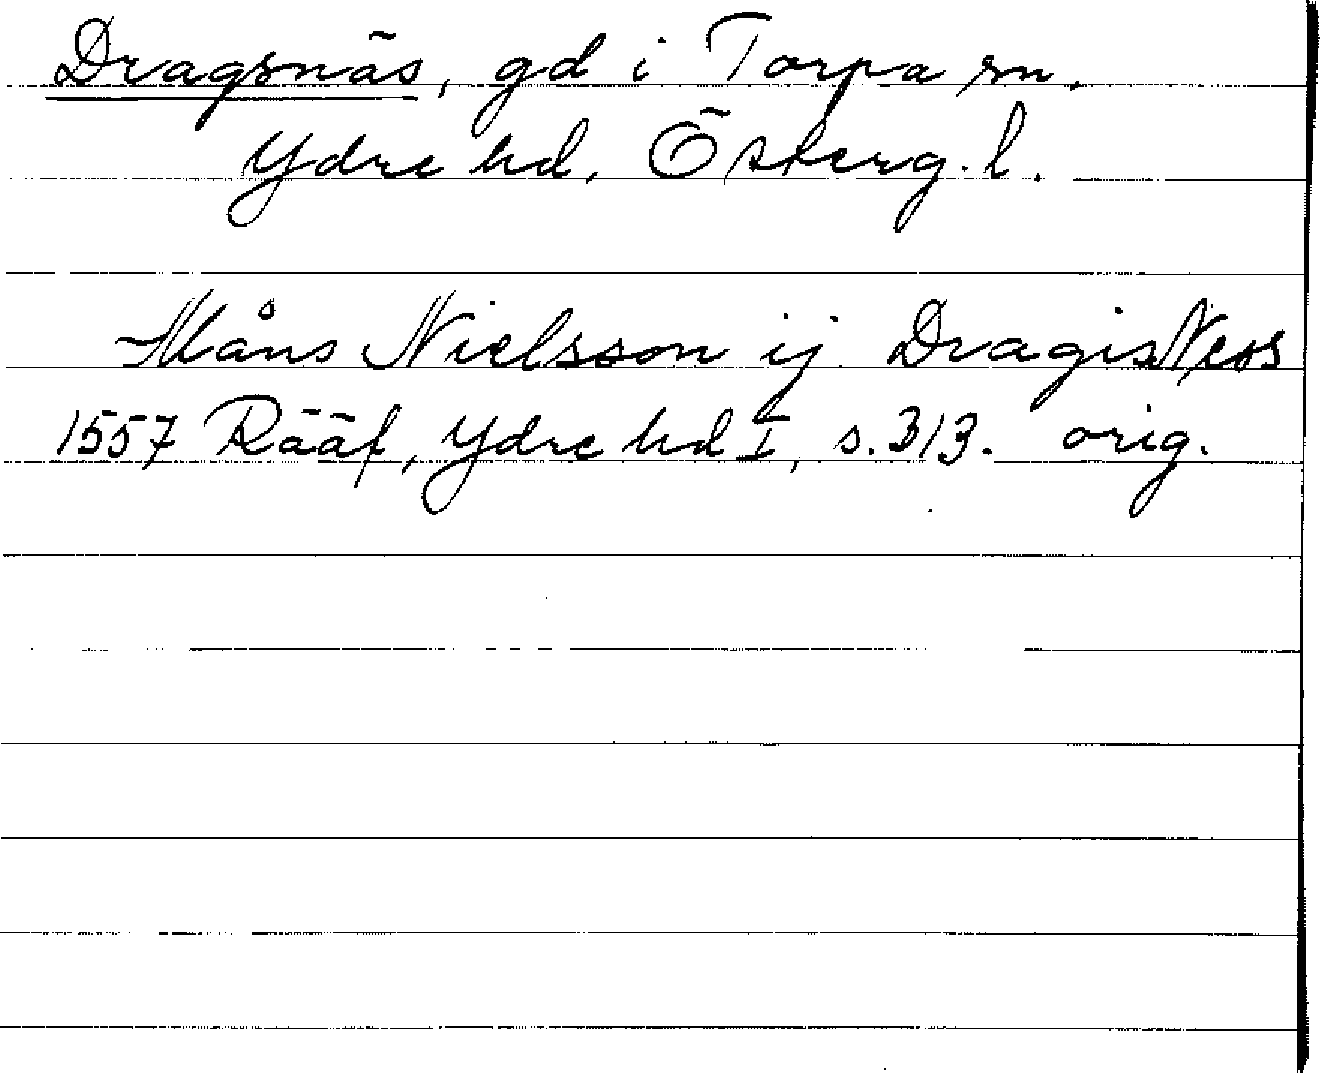 Dragsnäs, gd i Torpa sn,
Ydre hd, Österg. l.
Måns Nielsson ij DragisNess
1557 Rääf, Ydre hd I, s. 313. orig.